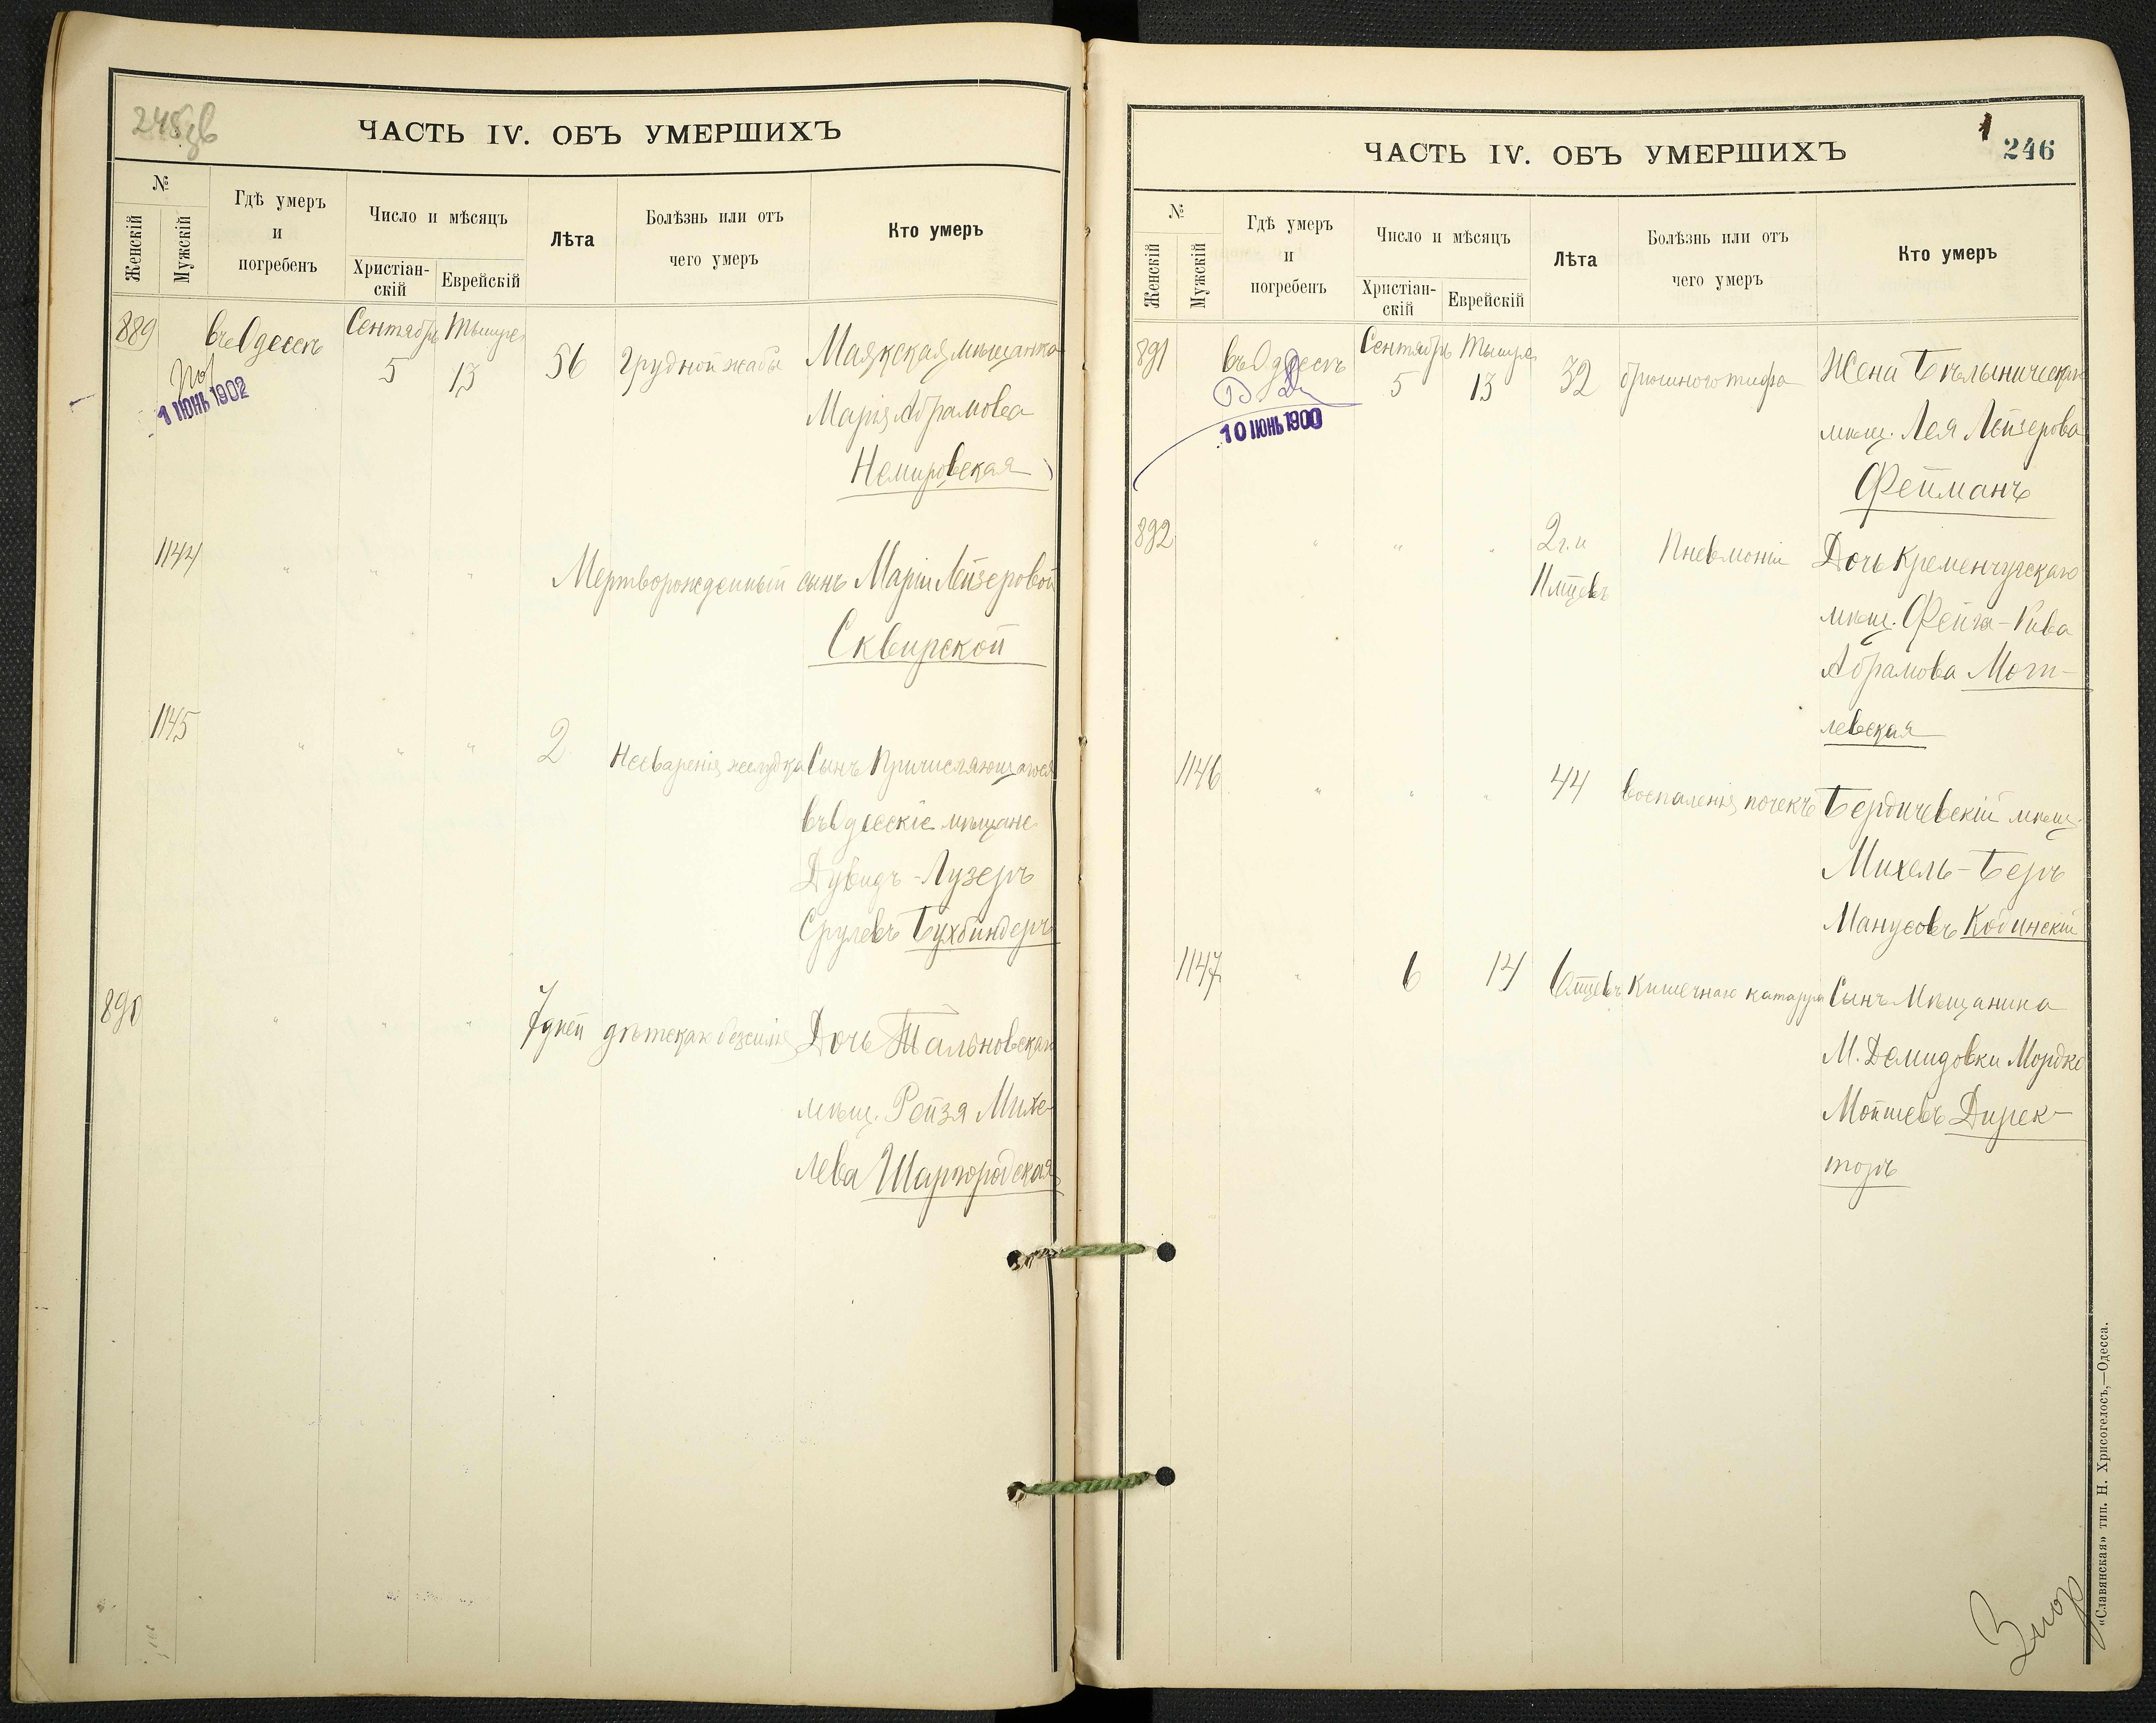 245 об
ЧАСТЬ IV. ОБЪ УМЕРШИХЪ
№
Женскій
Мужскій
Гдѣ умеръ
и
погребенъ
Число и мѣсяцъ
Христіан-
скій
Еврейскій
Лѣта
Болѣзнь или отъ
чего умеръ
Кто умеръ
889 въ Одессѣ Сентябрь 5 Тышре 13 56 грудной жабы Маякская мѣщанка
Марія Абрамова
Немировская
1 ІЮНЬ 1902
1144 " " " Мертворожденный сынъ Маріи Лейзеровой
Сквирской
1145 " " " 2 Несваренія желудка Сынъ Причисляющагося
въ Одесскіе мѣщане
Дувидъ-Лузеръ
Срулевъ Бухбиндеръ
890 " " " 7 дней дѣтскаго безсилія Дочь Тальновскаго
мѣщ. Рейзя Михе-
лева Шаргородская
ЧАСТЬ IV. ОБЪ УМЕРШИХЪ
246
№
Женскій
Мужскій
Гдѣ умеръ
и
погребенъ
Число и мѣсяцъ
Христіан-
скій
Еврейскій
Лѣта
Болѣзнь или отъ
чего умеръ
Кто умеръ
891 въ Одессѣ Сентябрь 5 Тышре 13 32 брюшного тифа Жена Бѣлыническаго
мѣщ. Лея Лейзерова
Фейманъ
10 ІЮНЬ 1900
892 " " " 2 г. и Пневмоніи Дочь Кременчугскаго
11 мѣсцевъ мѣщ. Фейга-Рива
Абрамова Моги-
левская
1146 " " " 44 воспаленія почекъ Бердичевскій мѣщ.
Михель-Беръ
Манусовъ Кобинскій
1147 " 6 14 6 мѣсцевъ Кишечнаго катарра Сынъ Мѣщанина
М. Демидовки Мордко
Мошевъ Дирек-
торъ
«Славянская» тип. Н. Хрисогелосъ,—Одесса.